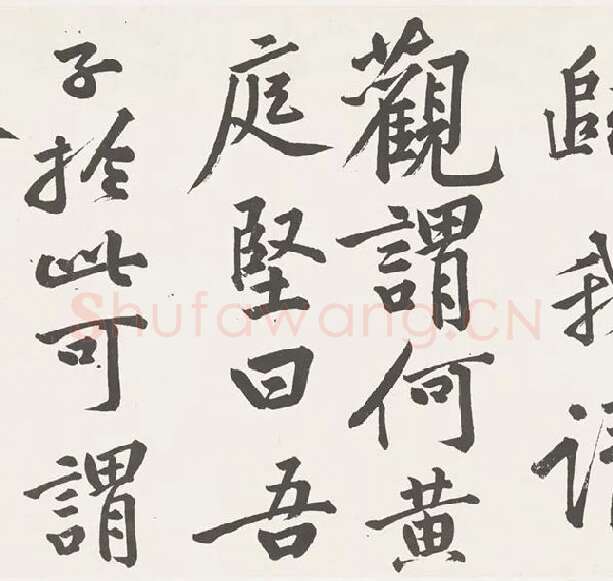 觀謂何黃
庭堅曰吾
子於此可謂
Shufawang.CN